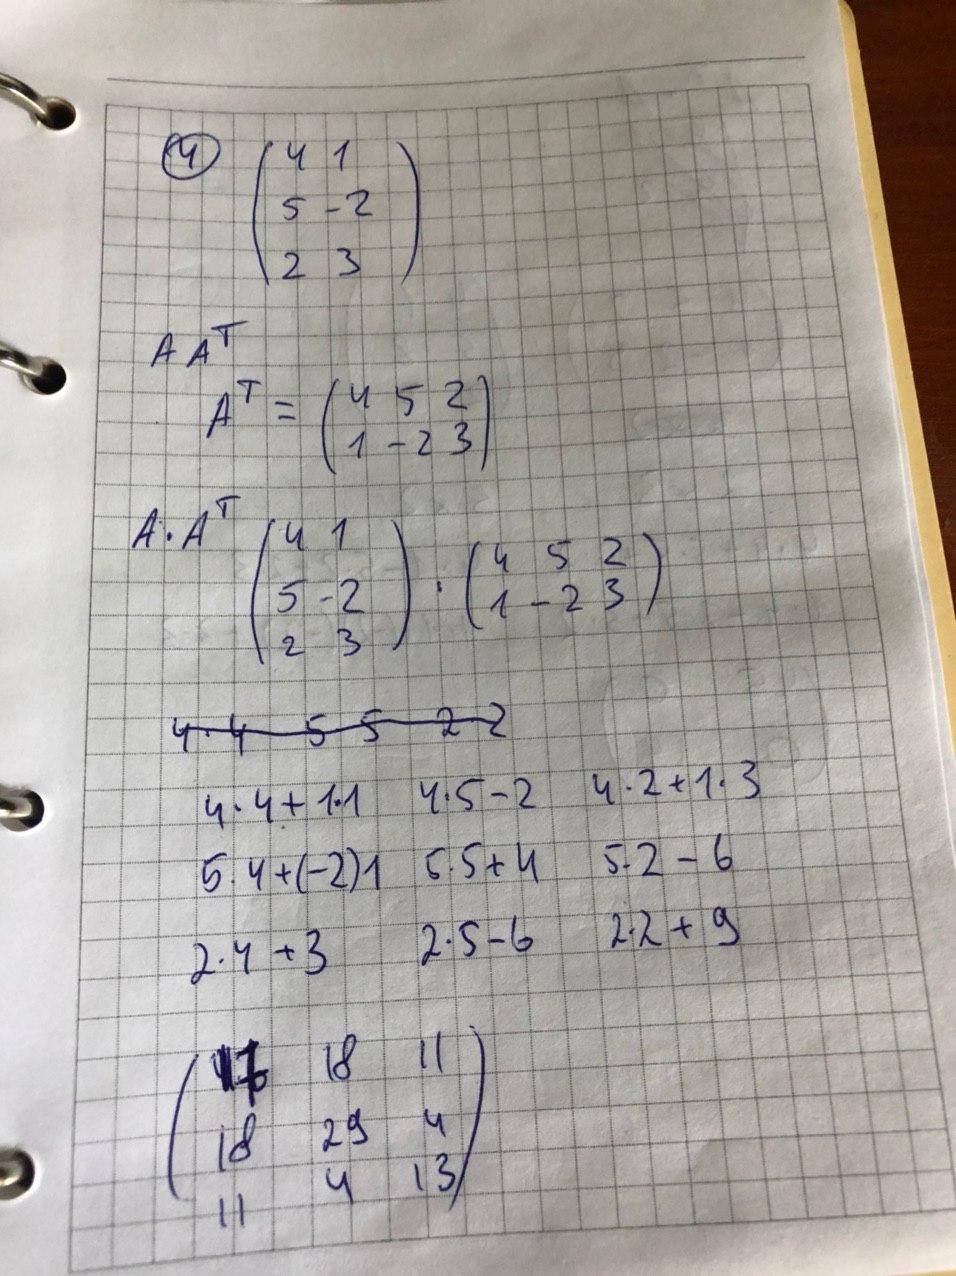 ④ ( 4 1
5 -2
2 3 )
A Aᵀ
Aᵀ = ( 4 5 2
1 -2 3 )
A · Aᵀ ( 4 1
5 -2
2 3 ) · ( 4 5 2
1 -2 3 )
4 · 4 5 5 2 2
4·4+1·1 4·5-2 4·2+1·3
5·4+(-2)1 5·5+4 5·2-6
2·4+3 2·5-6 2·2+9
( 17 18 11
18 29 4
11 4 13 )